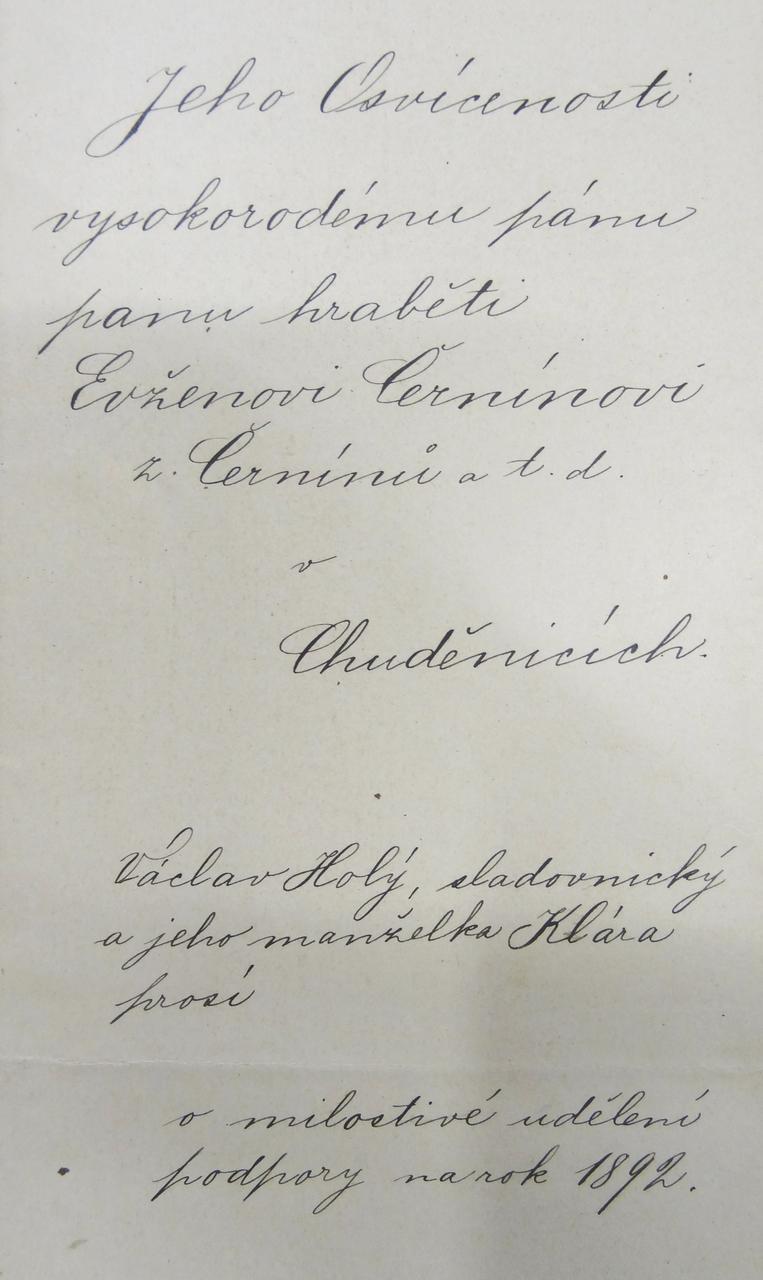 Jeho Osvícenosti
vysokorodému pánu
panu hraběti
Evženovi Černínovi
z. Černínů a t. d.
v
Chuděnicích.
Václav Holý, sladovnický
a jeho manželka Klára
prosí
o milostivé udělení
podpory na rok 1892.